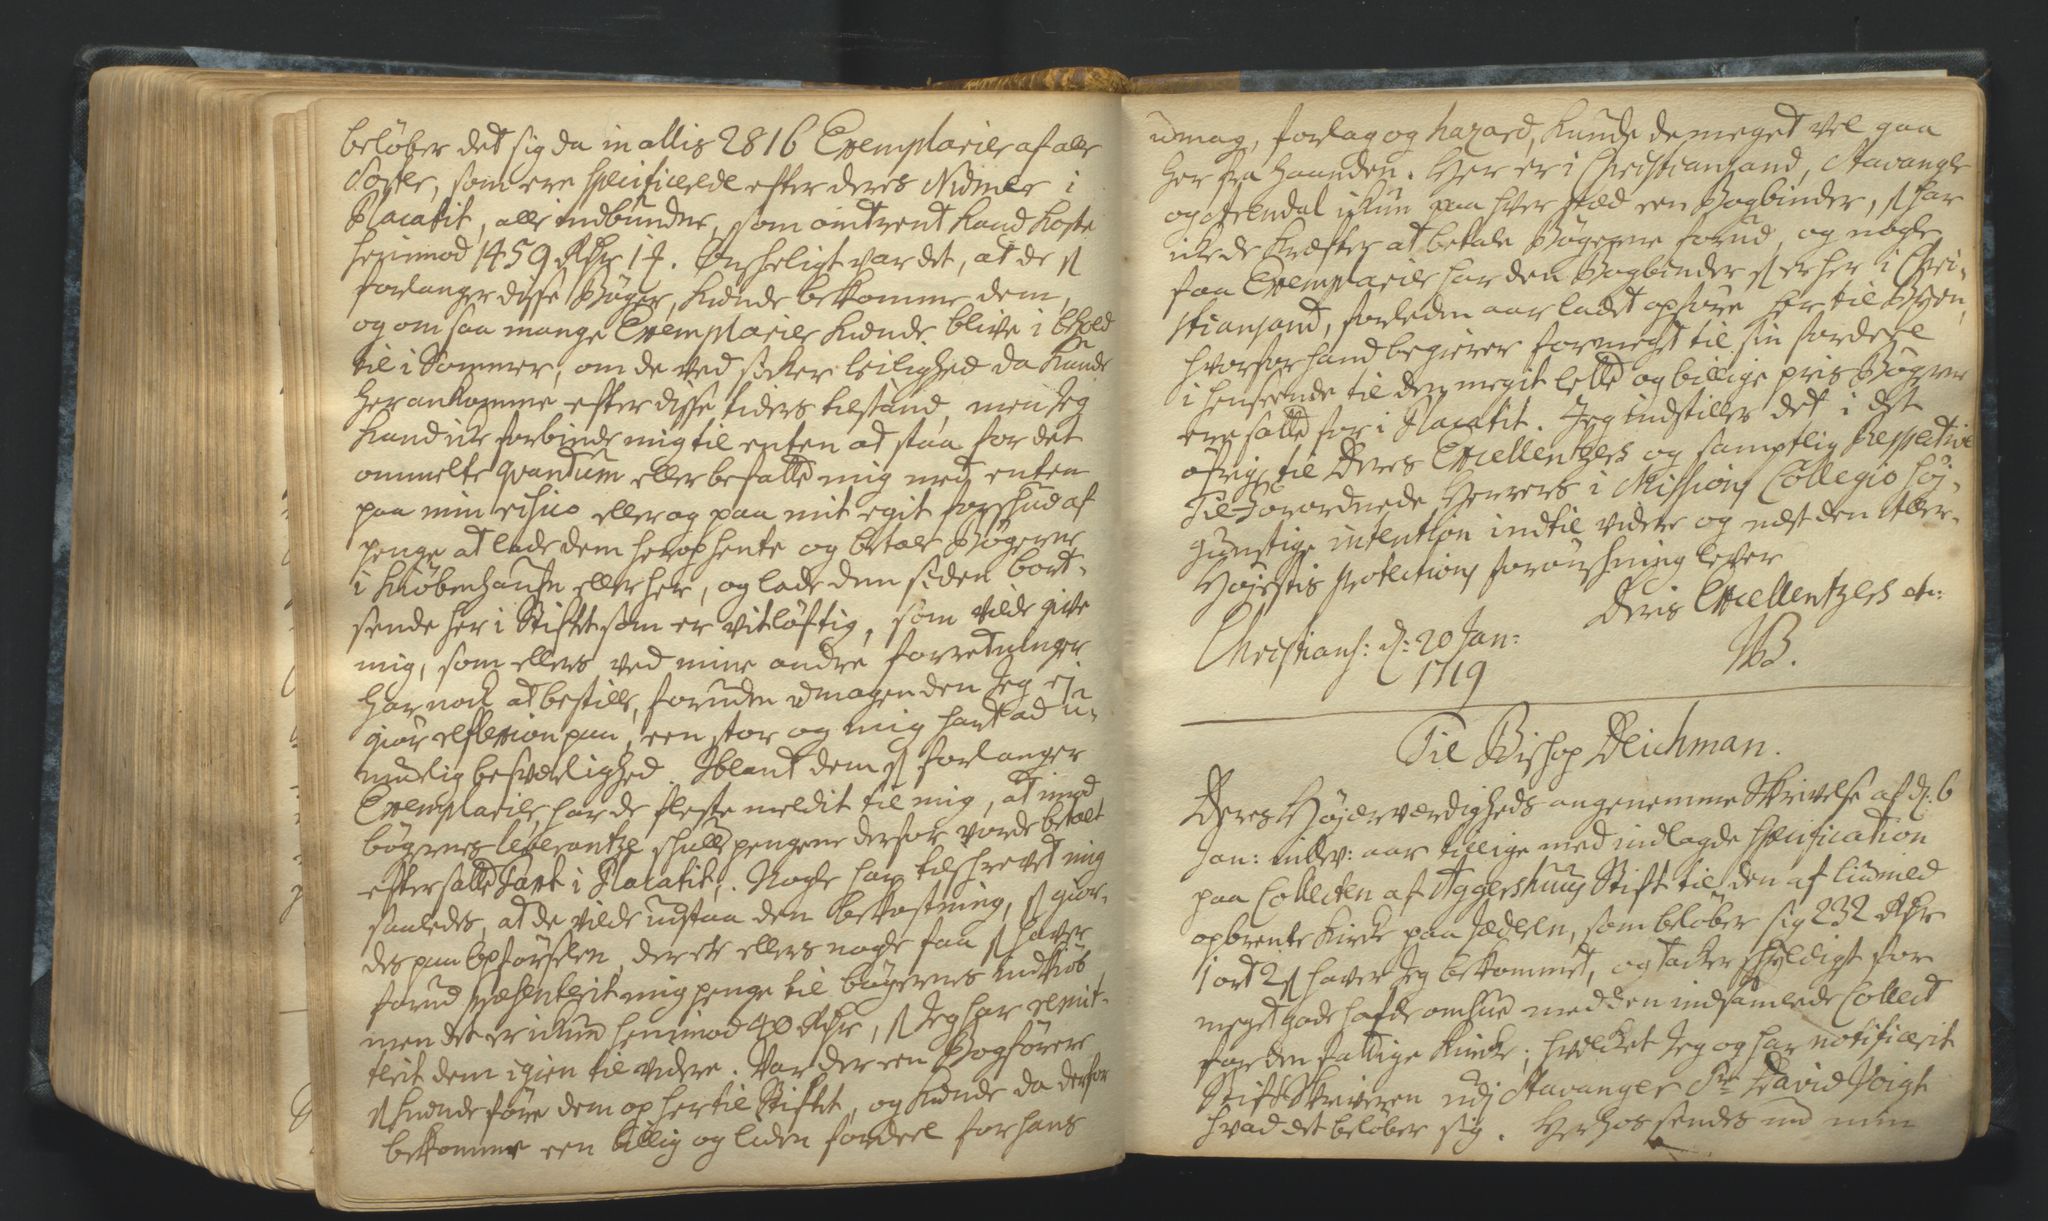 beløber det sig da in allis 2816 Exemplarier af alle
Sorter, som ere specificerede efter deres Numer i
Placatit, alle indbundne, som omtrent kand koste
henimod 1459 Rdr 1 #. Ønskeligt var det, at de s
forlanger disse Bøger, kunde bekomme dem,
og om saa mange Exemplarier kunde blive i behold
til i Sommer, om de ved sicker leilighed da kunde
her ankomme efter disse tiders tilstand, men Jeg
kand icke forbinde mig til enten at staa for det
ommelte qvantum eller befatte mig med enten
paa min risico eller og paa mit egit forskud af
penge at lade dem herop hente og betale Bøgerne
i Kiøbenhaufn eller her, og lade dem siden bort-
sende her i Stiftet som er vitløftig, som vilde give
mig, som ellers ved mine andre forretninger
har nock at bestille, foruden umagen den Jeg ej
giør reflexion paa, een stor og mig hart ad u-
muelig besværlighed. Iblant dem s forlanger
Exemplarier, har de fleste meldit til mig, at imod
bøgernes leverantze skulle pengene derfor vorde betalt
efter satte Taxt i Placatit. Nogle har tilskrevet mig
saaledes, at de vilde udstaa den bekostning, s giør-
des paa Opførselen, der er ellers nogle faa s haver
forud præsenterit mig penge til bøgernes indkiøb
men det er ickun henimod 40 Rdr, s Jeg har remit-
terit dem igien til videre. Var der een Bogfører
s kunde føre dem op her til Stiftet, og kunde da derfor
bekomme een billig og liden fordeel for hans
umag, forlag og hazard, kunde de meget vel gaa
her fra haanden. Her er i Christiansand, Stavanger
og Arendal ickun paa hver stæd een Bogbinder, s har
icke de kræfter at betale Bøgerne forud, og nogle
faa Exemplarier har den Bogbinder s er her i Chri-
stiansand, forleden aar ladet opføre her til Byen,
hvorfor hand begierer formeget til sin fordeel
i henseende til den megit lette og billige pris Bøgerne
ere satte for i Placatit. Jeg indstiller det i det
øfrige til Deres Excellentzers og samptlig Respective
Til-Forordnede Herrers i Missions Collegio høj-
gunstige intention indtil videre og næst den Aller-
Højestis Protections forønskning lever
Deris Excellentzers etc:
Christians: d: 20 Jan:
1719
JB.
Til Bishop Deichman.
Deres Højærværdigheds angenemme Skrivelse af d: 6
Jan: indev: aar tillige med indlagde specification
paa Collecten af Aggershuus Stift til den af liunild
opbrente Kircke paa Jædderen, som beløber sig 232 Rdr
1 ort 2 s haver Jeg bekommet, og tacker skyldigst for
meget gode hafde omhue med den indsamlede Collect
for den fattige Kircke; hvilcket Jeg og har notificerit
Stift Skriveren udj Stavanger Sr David Voigt
hvad det beløber sig. Herhos sendes nu min